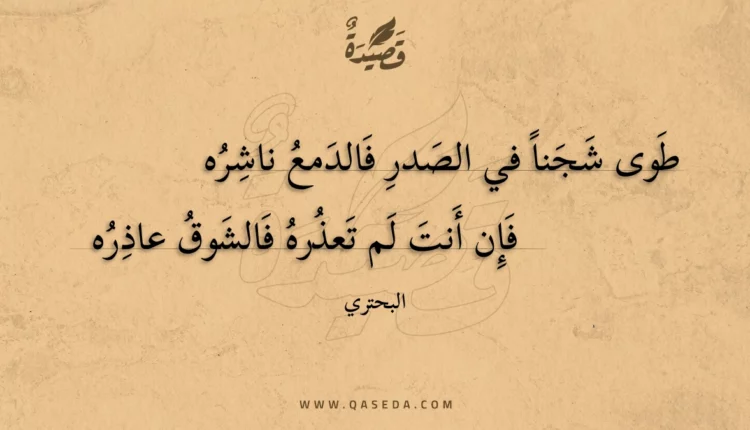 قَصِيْدَةٌ
طَوى شَجَناً في الصَدرِ فَالدَمعُ ناشِرُه
فَإِن أَنتَ لَم تَعذُرهُ فَالشَوقُ عاذِرُه
البحتري
WWW.QASEDA.COM